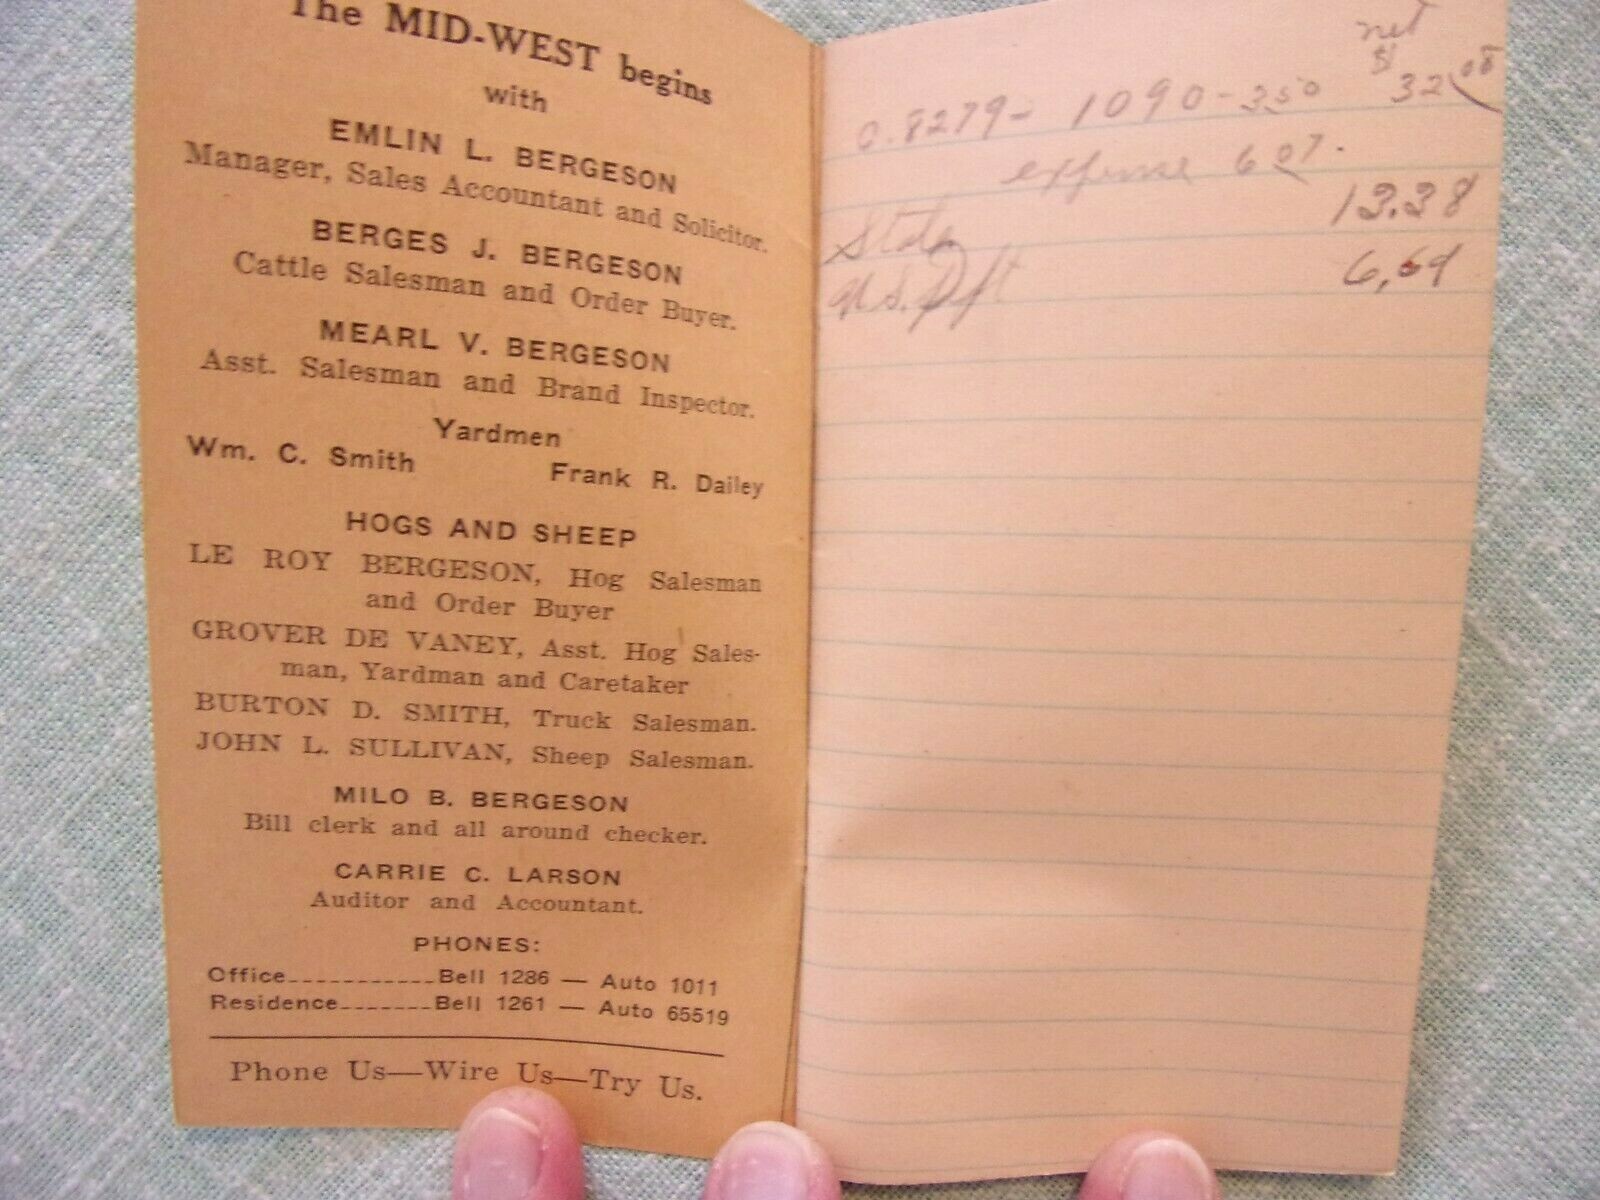 The MID-WEST begins
with
EMLIN L. BERGESON
Manager, Sales Accountant and Solicitor.
BERGES J. BERGESON
Cattle Salesman and Order Buyer.
MEARL V. BERGESON
Asst. Salesman and Brand Inspector.
Yardmen
Wm. C. Smith Frank R. Dailey
HOGS AND SHEEP
LE ROY BERGESON, Hog Salesman
and Order Buyer
GROVER DE VANEY, Asst. Hog Sales-
man, Yardman and Caretaker
BURTON D. SMITH, Truck Salesman.
JOHN L. SULLIVAN, Sheep Salesman.
MILO B. BERGESON
Bill clerk and all around checker.
CARRIE C. LARSON
Auditor and Accountant.
PHONES:
Office-----------Bell 1286 — Auto 1011
Residence-------Bell 1261 — Auto 65519
Phone Us—Wire Us—Try Us.
net
8279- 1090-350 $ 32 08
expense 6 07.
State 13.38